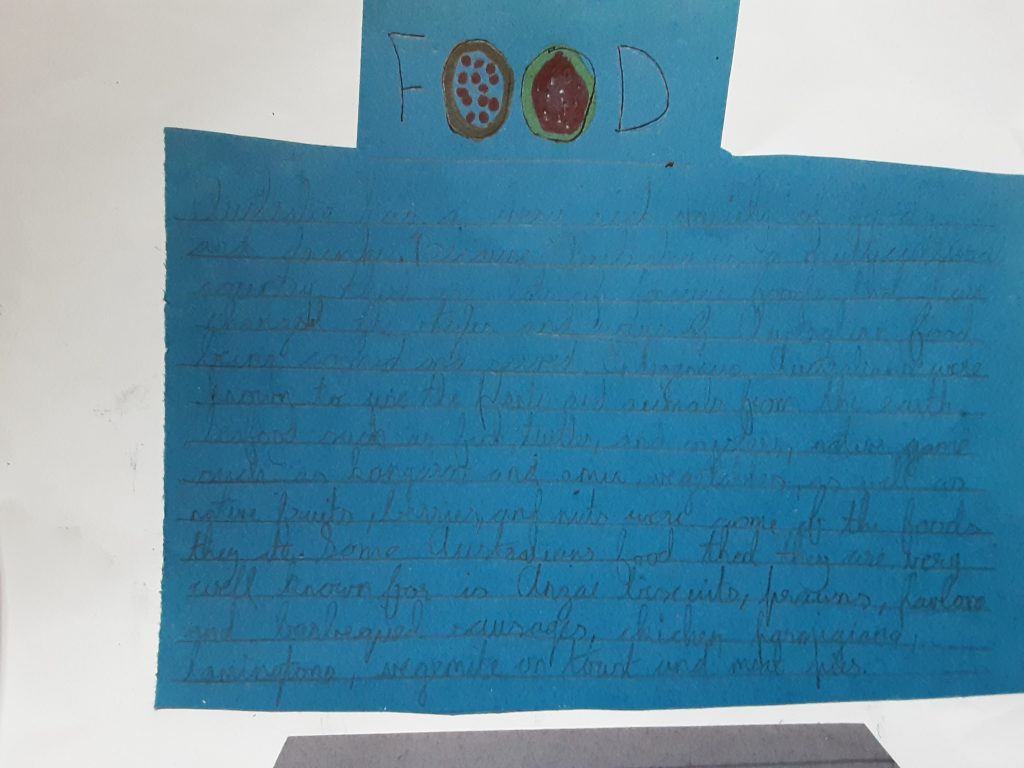 FOOD
Australia has a very rich variety of foods
and drinks. Because Australia is a multicultural
country, there are lots of foreign foods that have
changed the styles and ways of Australian food
being cooked and served. Indigenous Australians were
known to use the plants and animals from the earth.
Seafood such as fish, turtles, and oysters, native game
such as kangaroo and emu, vegetables, as well as
native fruits, berries, and nuts were some of the foods
they ate. Some Australians food that they are very
well known for is Anzac biscuits, prawns, pavlova
and barbequed sausages, chicken parmigiana,
lamingtons, vegemite on toast and meat pies.